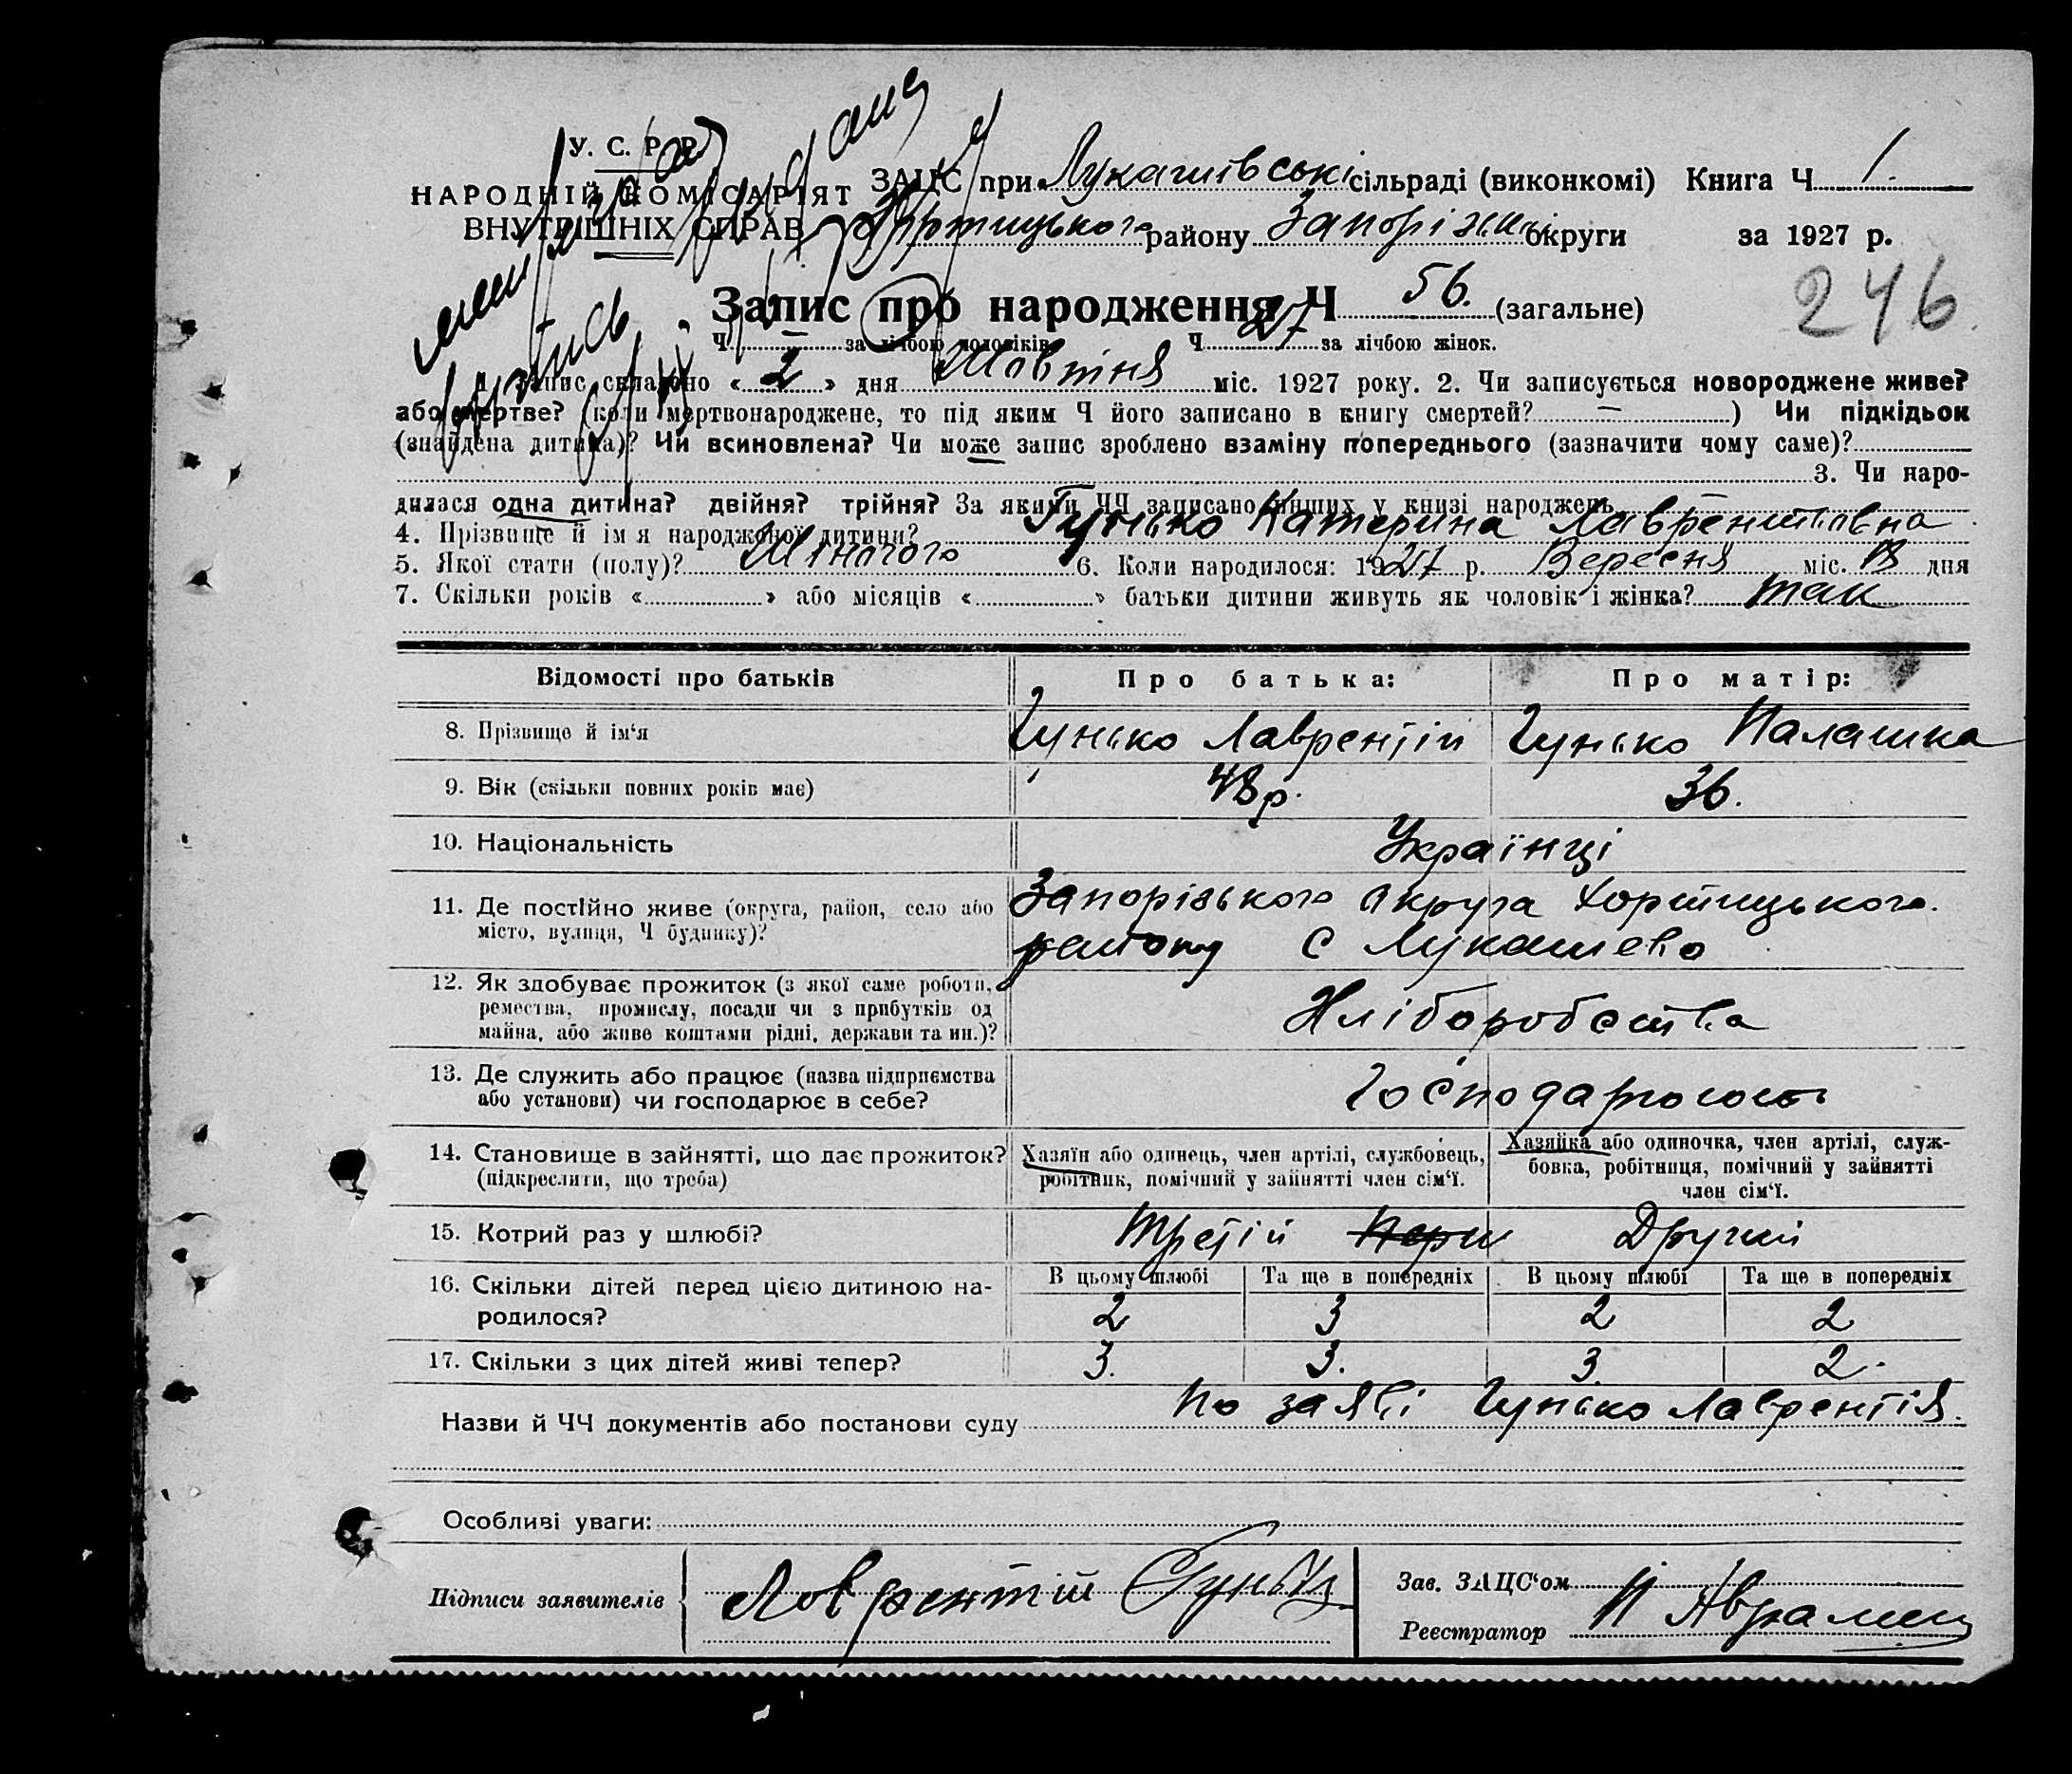 У. С. Р. Р.
НАРОДНІЙ КОМІСАРІЯТ
ВНУТРІШНІХ СПРАВ
ЗАЦС при Лукашівській сільраді (виконкомі) Книга Ч 1.
Хортицького району Запоріжж. округи за 1927 р.
Запис про народження Ч 56. (загальне)
246
Ч — за лічбою чоловіків Ч 27 за лічбою жінок.
1. Запис складено « 2 » дня Жовтня міс. 1927 року. 2. Чи записується новороджене живе?
або мертве? (коли мертвонароджене, то під яким Ч його записано в книгу смертей? — ) Чи підкідьок
(знайдена дитина)? Чи всиновлена? Чи може запис зроблено взаміну попереднього (зазначити чому саме)?
3. Чи наро-
дилася одна дитина? двійня? трійня? За якими ЧЧ записано инших у книзі народжень —
4. Прізвище й ім'я народженої дитини? Гунько Катерина Лаврентьівна
5. Якої стати (полу)? Жіночого 6. Коли народилося: 1927 р. Вересня міс. 18 дня
7. Скільки років « » або місяців « » батьки дитини живуть як чоловік і жінка? так
Відомості про батьків Про батька: Про матір:
8. Прізвище й ім'я Гунько Лаврентій Гунько Палашка
9. Вік (скільки повних років має) 48 р. 36.
10. Національність Українці
11. Де постійно живе (округа, район, село або Запорізького округа Хортицького
місто, вулиця, Ч будинку)? району с Лукашево
12. Як здобуває прожиток (з якої саме роботи,
ремества, промислу, посади чи з прибутків од
майна, або живе коштами рідні, держави та ин.)? Хліборобства
13. Де служить або працює (назва підприємства
або установи) чи господарює в себе? Господарюють
14. Становище в зайнятті, що дає прожиток? Хазяїн або одинець, член артілі, службовець, Хазяйка або одиночка, член артілі, служ-
(підкреслити, що треба) робітник, помічний у зайнятті член сім'ї. бовка, робітниця, помічний у зайнятті
член сім'ї.
15. Котрий раз у шлюбі? Третій Перш Другий
16. Скільки дітей перед цією дитиною на- В цьому шлюбі Та ще в попередніх В цьому шлюбі Та ще в попередніх
родилося? 2 3 2 2
17. Скільки з цих дітей живі тепер? 3. 3. 3 2.
Назви й ЧЧ документів або постанови суду По заяві Гунько Лаврентія.
Особливі уваги:
Підписи заявителів Ловрентій Гунько
Зав. ЗАЦС'ом
Реєстратор И Аврамец